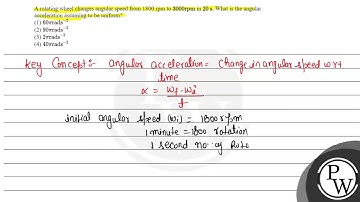 A rotating wheel changes angular speed from 1800 rpm to 3000rpm in 20 s. What is the angular
acceleration assuming to be uniform?
(1) 60πrads⁻²
(2) 90πrads⁻²
(3) 2πrads⁻²
(4) 40πrads⁻²
Key Concept:- angular acceleration = Change in angular speed w r t
time
α = ωf - ωi / t
initial angular speed (ωi) = 1800 rpm
1 minute = 1800 rotation
1 second no. of Rota
PW